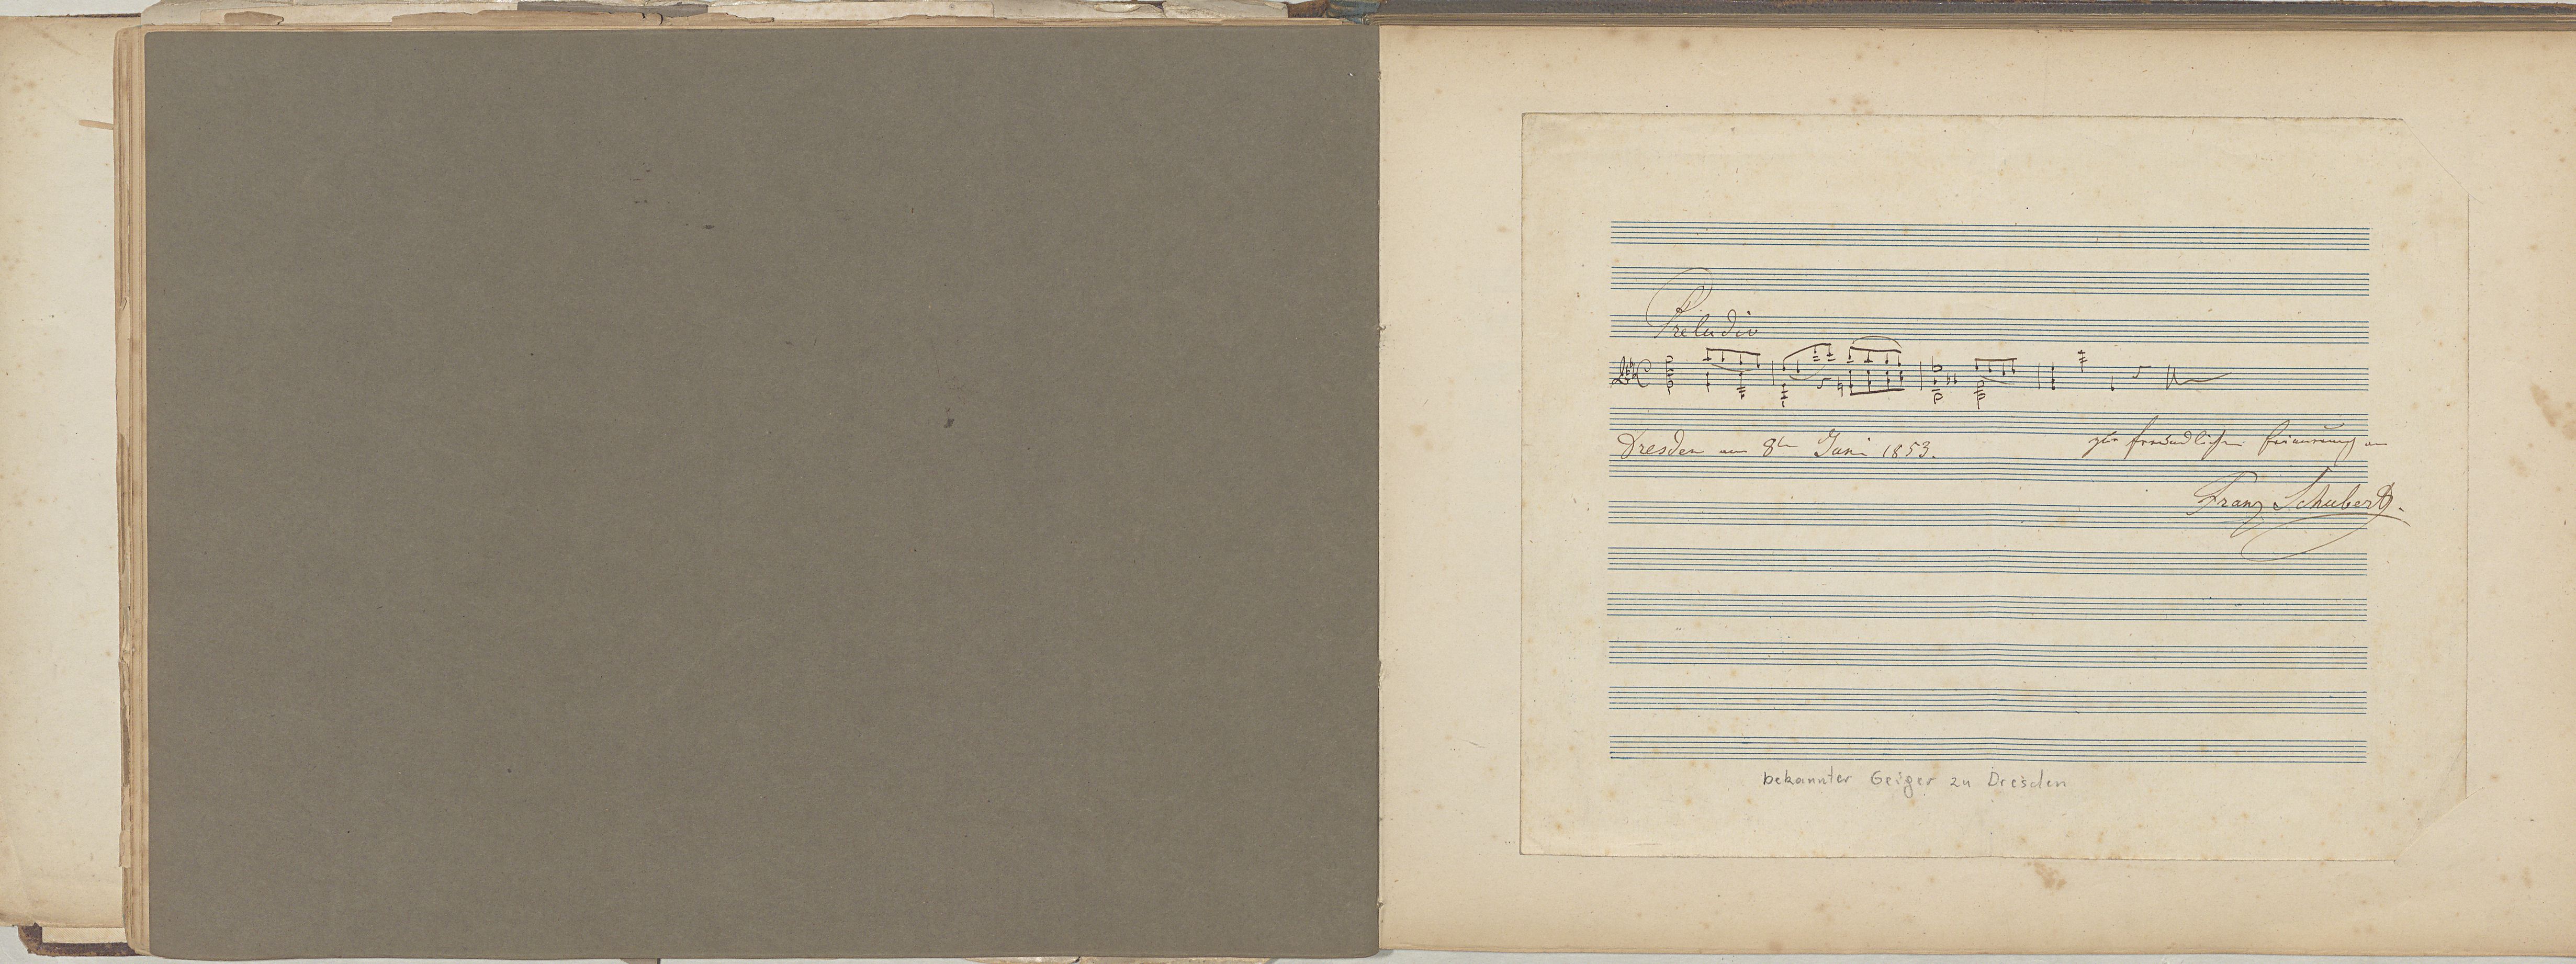 Preludio
Dresden am 8ten Juni 1853.
zur freundlichen Erinnerung an
Franz Schubert.
bekannter Geiger zu Dresden